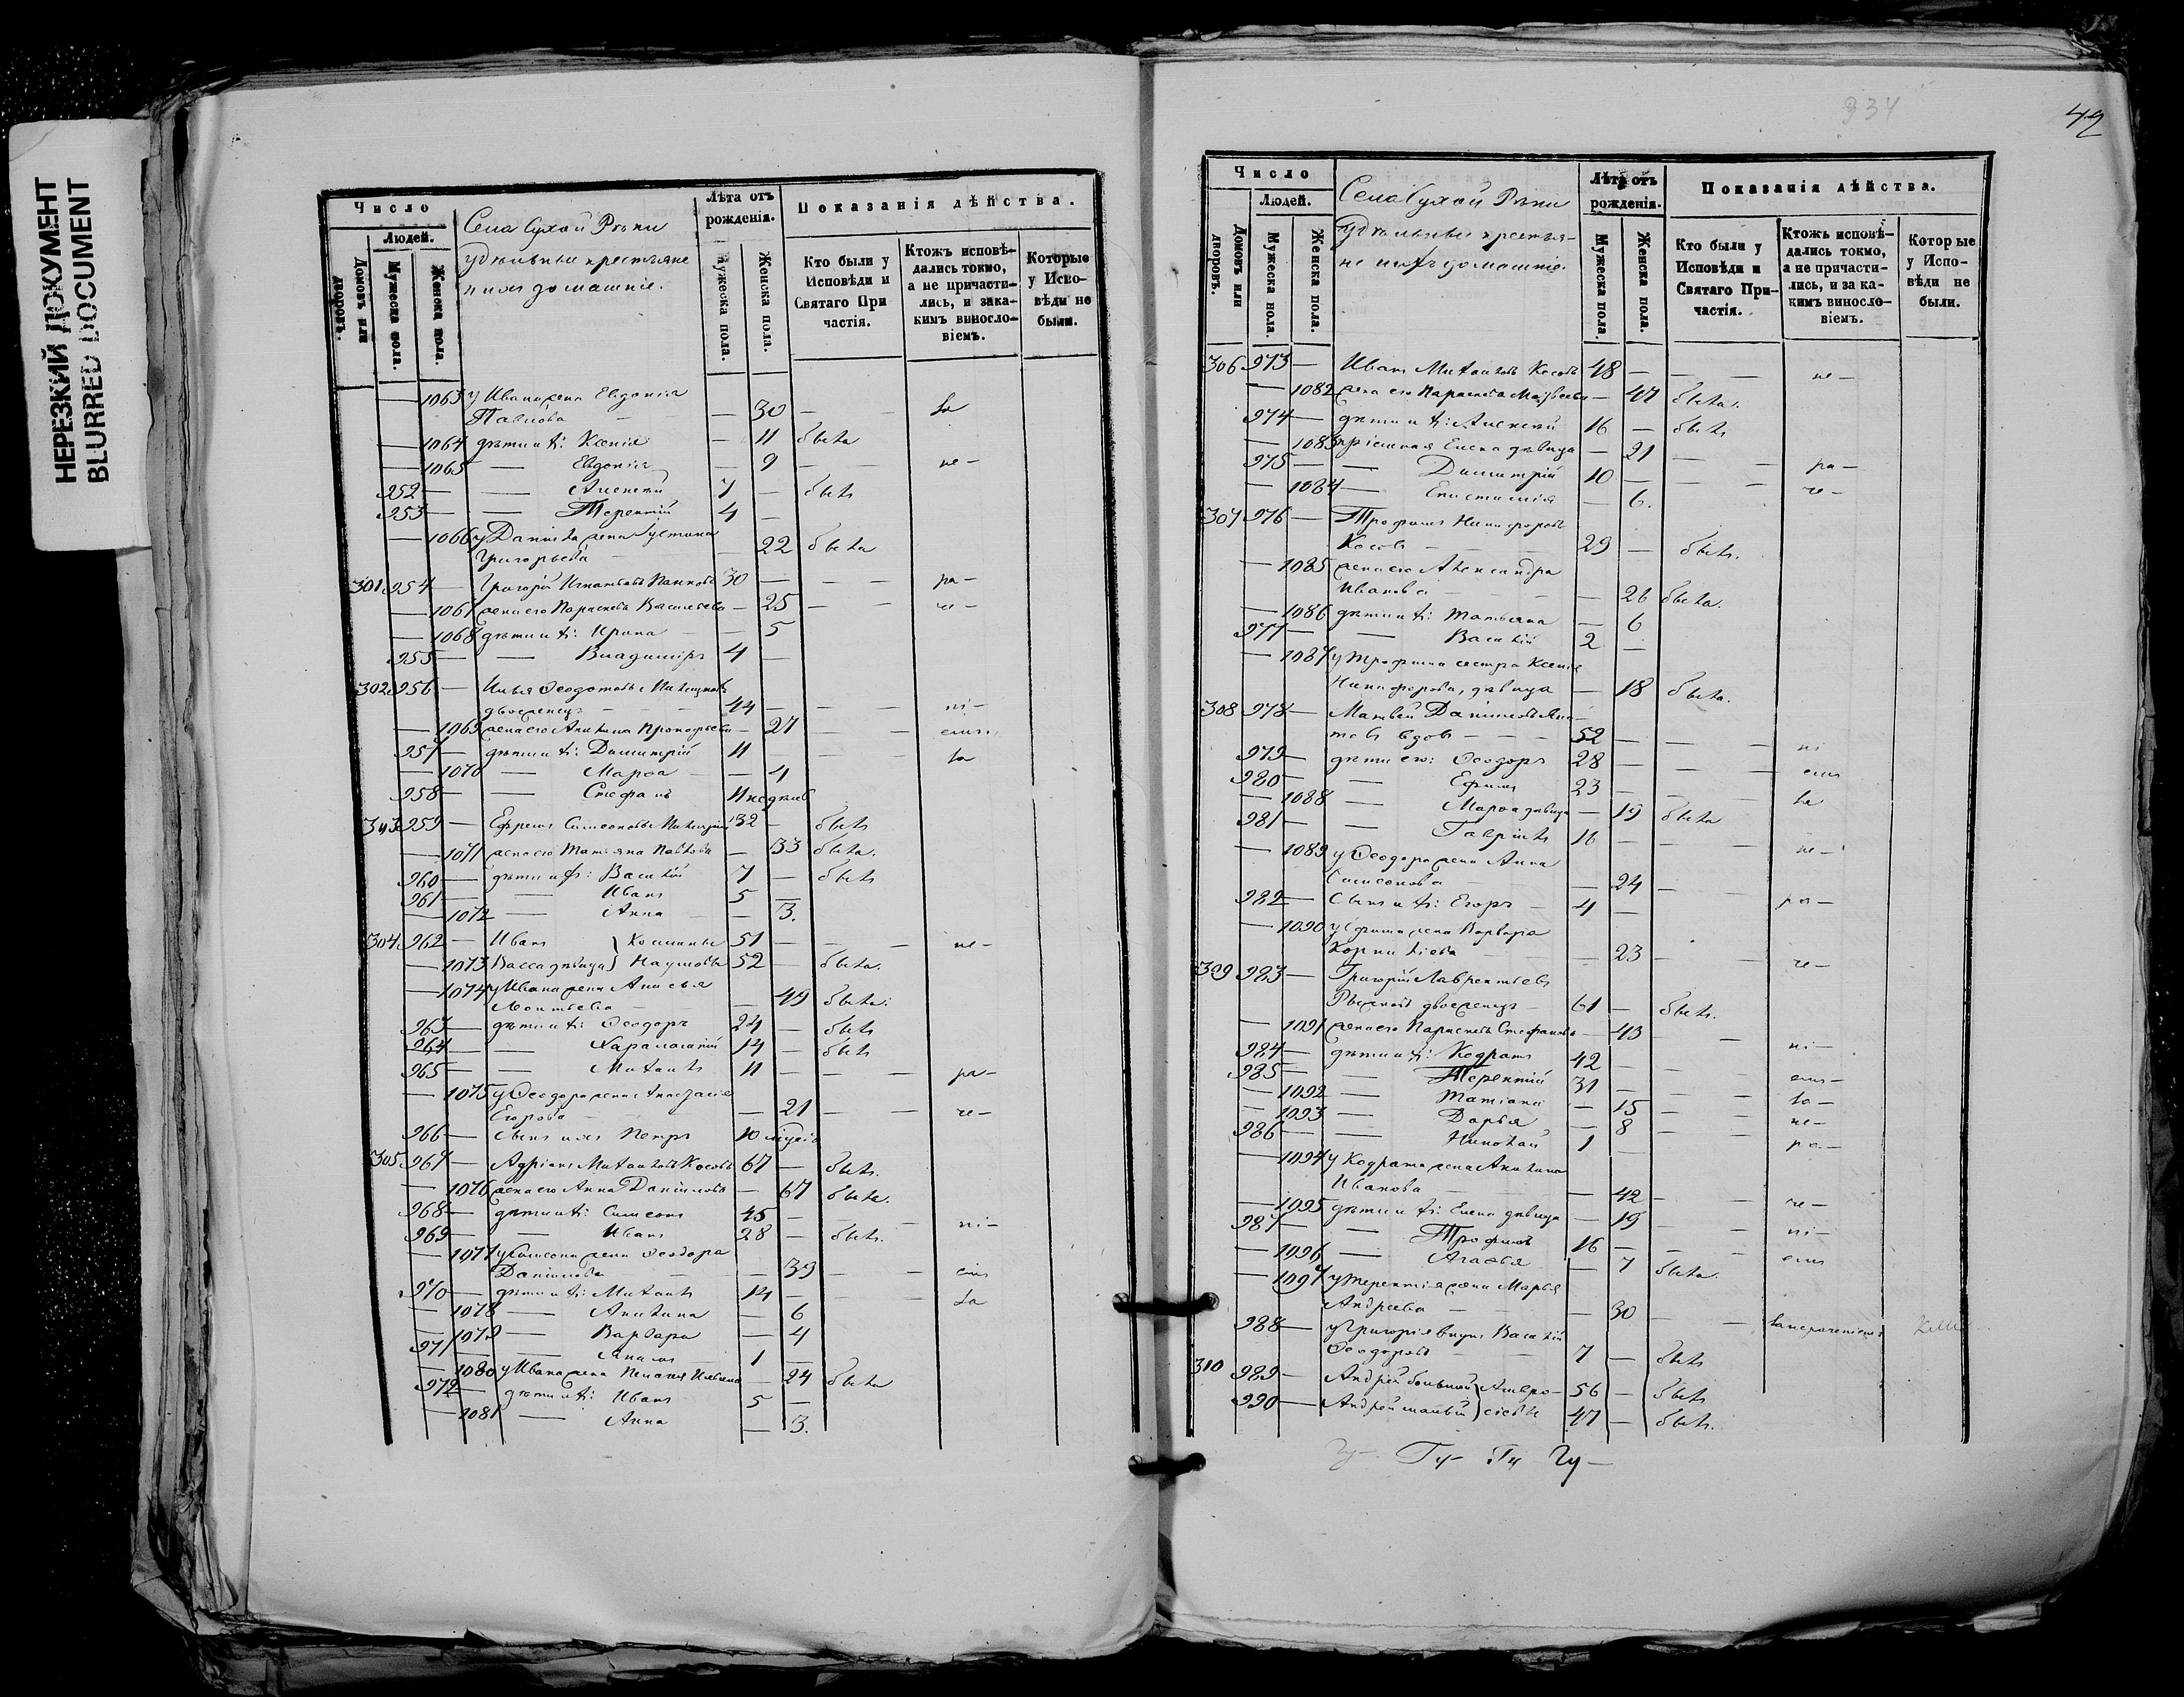 НЕРЕЗКИЙ ДОКУМЕНТ
BLURRED DOCUMENT
Число
Людей.
Домовъ или дворовъ.
Мужеска пола.
Женска пола.
Села Сухой Рѣки
удѣльные крестьяне
и ихъ домашніе.
Лѣта отъ рожденія.
Мужеска пола.
Женска пола.
Показанія дѣйства.
Кто были у Исповѣди и Святаго При частія.
Ктожъ исповѣ-дались токмо, а не причасти-лись, и зака-кимъ виносло-віемъ.
Которые у Испо-вѣди не были.
— 1063 у Ивана жена Евдокія
Павлова — 30 — — за
— 1064 дѣти ихъ: Ксенія — 11 была
— 1065 — Евдокія — 9 — не —
952 — — Алексѣй 7 — былъ
953 — — Терентій 4 —
— 1066 у Даніила жена Іустина
Григорьева — 22 была
301 954 — Григорій Игнатьевъ 30 — — — ра —
— 1067 жена его Параскева Васильева — 25 — — че —
— 1068 дѣти ихъ: Ирина — 5
955 — — Владиміръ 4 —
302 956 — Илья Ѳеодотовъ
двоеженецъ 44 — — — ні —
— 1069 жена его Акилина Прокофьева — 27 — — емъ
957 — дѣти ихъ: Димитрій 11 — — за
— 1070 — Марѳа — 4
958 — — Стефанъ
303 959 — Ефремъ Симеоновъ 32 — былъ
— 1071 жена его Татьяна Павлова — 33 была.
960 — дѣти ихъ: Василій 7 — былъ
961 — — Иванъ 5 —
— 1072 — Анна — 3.
304 962 — Иванъ } 51 — — — не —
— 1073 Васса дѣвица } Наумовы 52 — была.
— 1074 у Ивана жена Анисья
Леонтьева — 49 была.
963 — дѣти ихъ: Ѳеодоръ 24 — былъ
964 — — Харалампій 14 — былъ
965 — — Михаилъ 11 — — — ра —
— 1075 у Ѳеодора жена Анастасія
Егорова — 21 — — че —
966 — сынъ ихъ Петръ 10
305 967 — Адріанъ Михаиловъ Косовъ 67 — былъ.
— 1076 жена его Анна Даніилова — 67 была.
968 — дѣти ихъ: Симеонъ 45 — — ні —
969 — — Иванъ 28 — былъ.
— 1077 у Симеона жена Ѳеодора
Даніилова — 39 — — емъ
970 — дѣти ихъ: Михаилъ 14 — — за
— 1078 — Акилина — 6
— 1079 — Варвара — 4
971 — — 1 —
— 1080 у Ивана жена Пелагея — 24 была
972 — дѣти ихъ: Иванъ 5 —
— 1081 — Анна — 3.
334
42
Число
Людей.
Домовъ или дворовъ.
Мужеска пола.
Женска пола.
Села Сухой Рѣки
Удѣльные крестья-
не и ихъ домашніе.
Лѣта отъ рожденія.
Мужеска пола.
Женска пола.
Показанія дѣйства.
Кто были у Исповѣди и Святаго При-частія.
Ктожъ исповѣ-дались токмо, а не причасти-лись, и за ка-кимъ винослo-віемъ.
Которые у Испо-вѣди не были.
306 973 — Иванъ Михаиловъ Косовъ 48 — — — не —
— 1082 жена его Параскева Матвѣева — 47 была.
974 — дѣти ихъ: Алексѣй 16 — былъ
— 1083 пріемная Елена дѣвица — 21 — — ра —
975 — — Димитрій 10 — — — че —
— 1084 — Епистимія — 6.
307 976 — Трофимъ Никифоровъ
Косовъ 29 — былъ.
— 1085 жена его Александра
Иванова — 26 была.
— 1086 дѣти ихъ: Татьяна — 6
977 — — Василій 2 —
— 1087 у Трофима сестра Ксенія
Никифорова, дѣвица — 18 была.
308 978 — Матвѣй Даніиловъ
вдовъ 52 — — — ні
979 — дѣти его: Ѳеодоръ 28 — — — емъ
980 — — Ефимъ 23 — — — за
— 1088 — Марѳа дѣвица — 19 была
981 — — Гавріилъ 16 — — — не —
— 1089 у Ѳеодора жена Анна
Симеонова — 24 — — ра —
982 — сынъ ихъ: Егоръ 4 —
— 1090 у Ефима жена Варвара
Корниліева — 23 — — че —
309 983 — Григорій Лаврентьевъ
двоеженецъ 61 — былъ.
— 1091 жена его Параскева Стефанова — 43 — — ні —
984 — дѣти ихъ: Кодратъ 42 — — — емъ —
985 — — Терентій 31 — — — за —
— 1092 — Татіана — 15 — — не —
— 1093 — Дарья — 8 — — ра —
986 — — Николай 1 —
— 1094 у Кодрата жена Акилина
Иванова — 42 — — че —
— 1095 дѣти ихъ: Елена дѣвица — 19 — — ні —
987 — — Трофимъ 16 — — — емъ
— 1096 — Агаѳья — 7 была.
— 1097 у Терентія жена Марья
Андреева — 30 — —
988 — у Григорія внукъ Василій
Ѳеодоровъ 7 — былъ
310 989 — Андрей большой } Амвро- 56 — былъ
990 — Андрей малый } сіевы 47 — былъ.